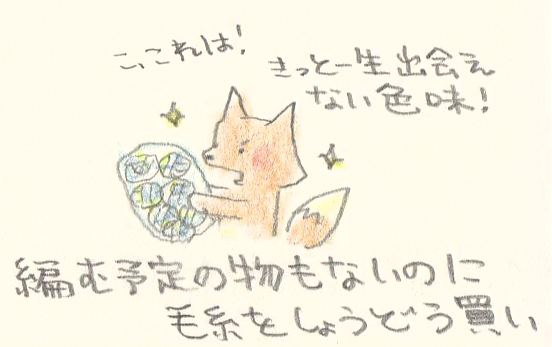 こ、これは!
きっと一生出会え
ない色味!
編む予定の物もないのに
毛糸をしょうどう買い